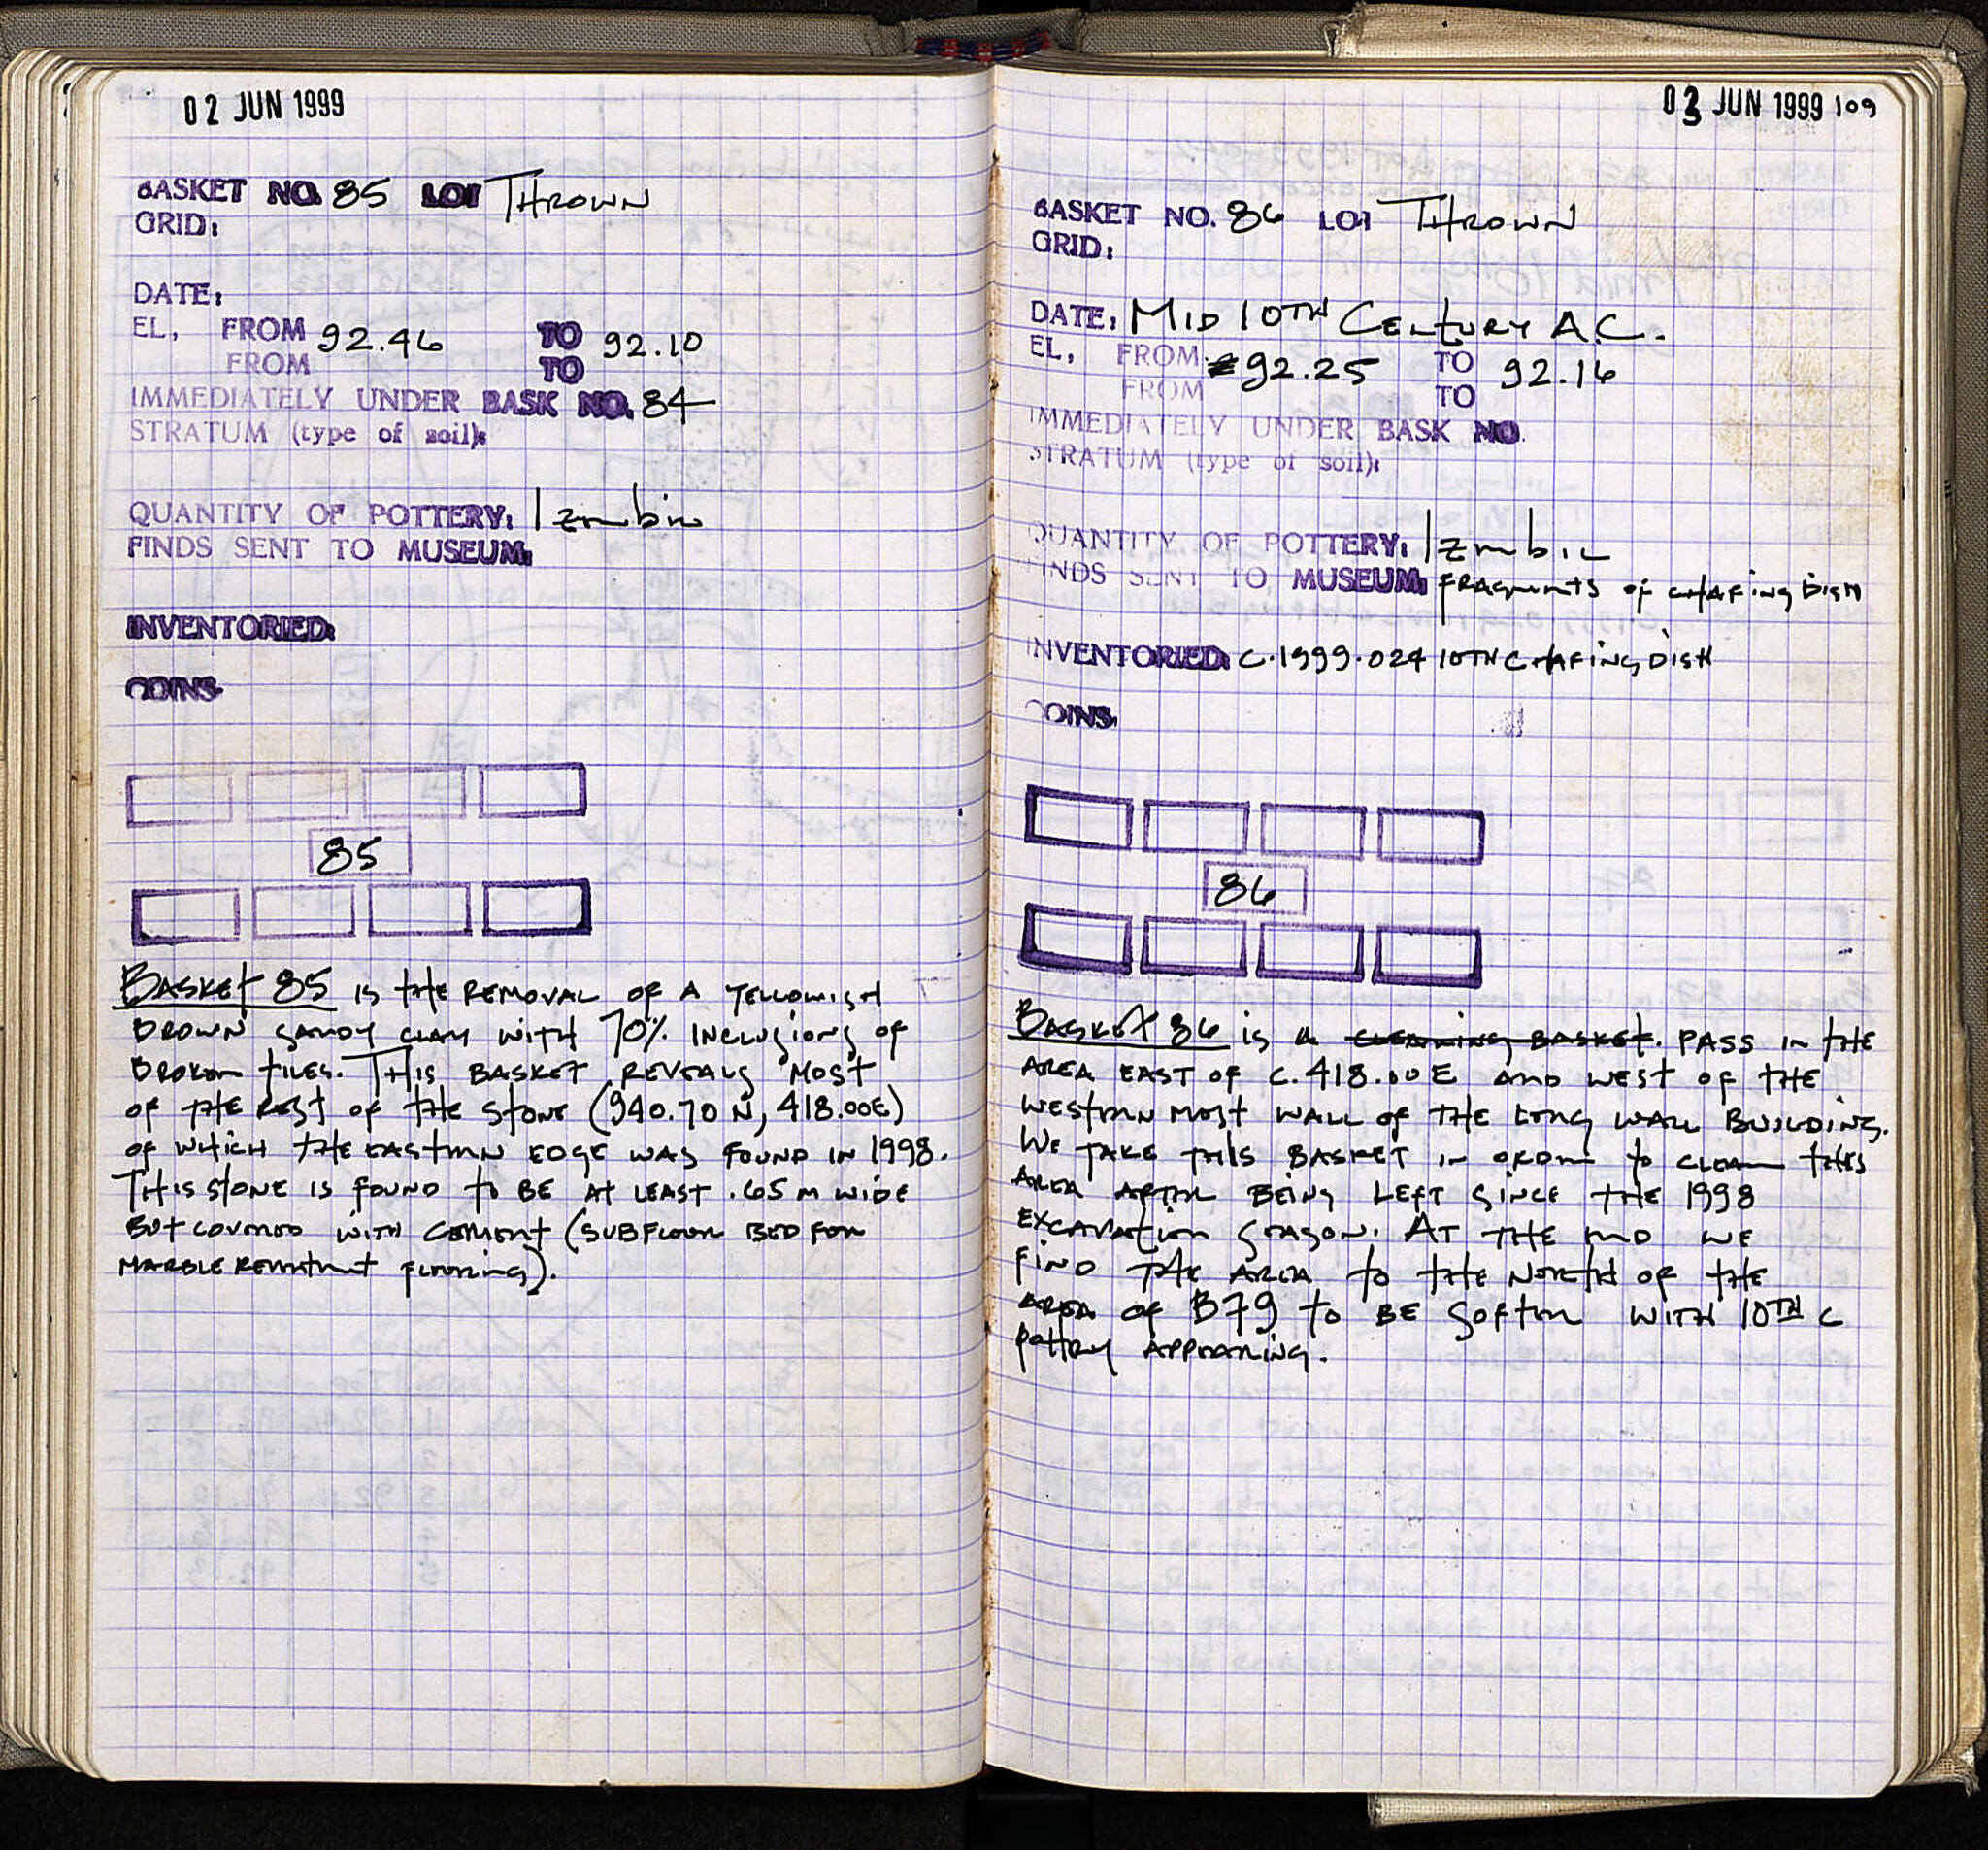 02 JUN 1999
BASKET NO. 85 LOT THROWN
GRID:
DATE:
EL, FROM 92.46 TO 92.10
FROM TO
IMMEDIATELY UNDER BASK NO. 84
STRATUM (type of soil):
QUANTITY OF POTTERY: 1 zmbin
FINDS SENT TO MUSEUM:
INVENTORIED:
COINS.
85
BASKET 85 IS THE REMOVAL OF A YELLOWISH
BROWN SANDY CLAY WITH 70% INCLUSIONS OF
BROKEN TILES. THIS BASKET REVEALS MOST
OF THE REST OF THE STONE (940.70 N, 418.00E)
OF WHICH THE EASTERN EDGE WAS FOUND IN 1998.
THIS STONE IS FOUND TO BE AT LEAST .65 M WIDE
BUT COVERED WITH CEMENT (SUBFLOOR BED FOR
MARBLE FLOORING).
03 JUN 1999 109
BASKET NO. 86 LOT THROWN
GRID:
DATE: MID 10TH CENTURY A.C.
EL, FROM 92.25 TO 92.16
FROM TO
IMMEDIATELY UNDER BASK NO.
STRATUM (type of soil):
QUANTITY OF POTTERY: 1 zmbin
FINDS SENT TO MUSEUM: FRAGMENTS OF CHAFING DISH
INVENTORIED: C.1999.024 10TH C CHAFING DISH
COINS.
86
BASKET 86 IS A CLEANING BASKET. PASS IN THE
AREA EAST OF C. 418.00E AND WEST OF THE
WESTERN MOST WALL OF THE LONG WALL BUILDING.
WE TAKE THIS BASKET IN ORDER TO CLEAN THIS
AREA AFTER BEING LEFT SINCE THE 1998
EXCAVATION SEASON. AT THE END WE
FIND THE AREA TO THE NORTH OF THE
AREA OF B79 TO BE SOFTER WITH 10TH C
POTTERY APPEARING.